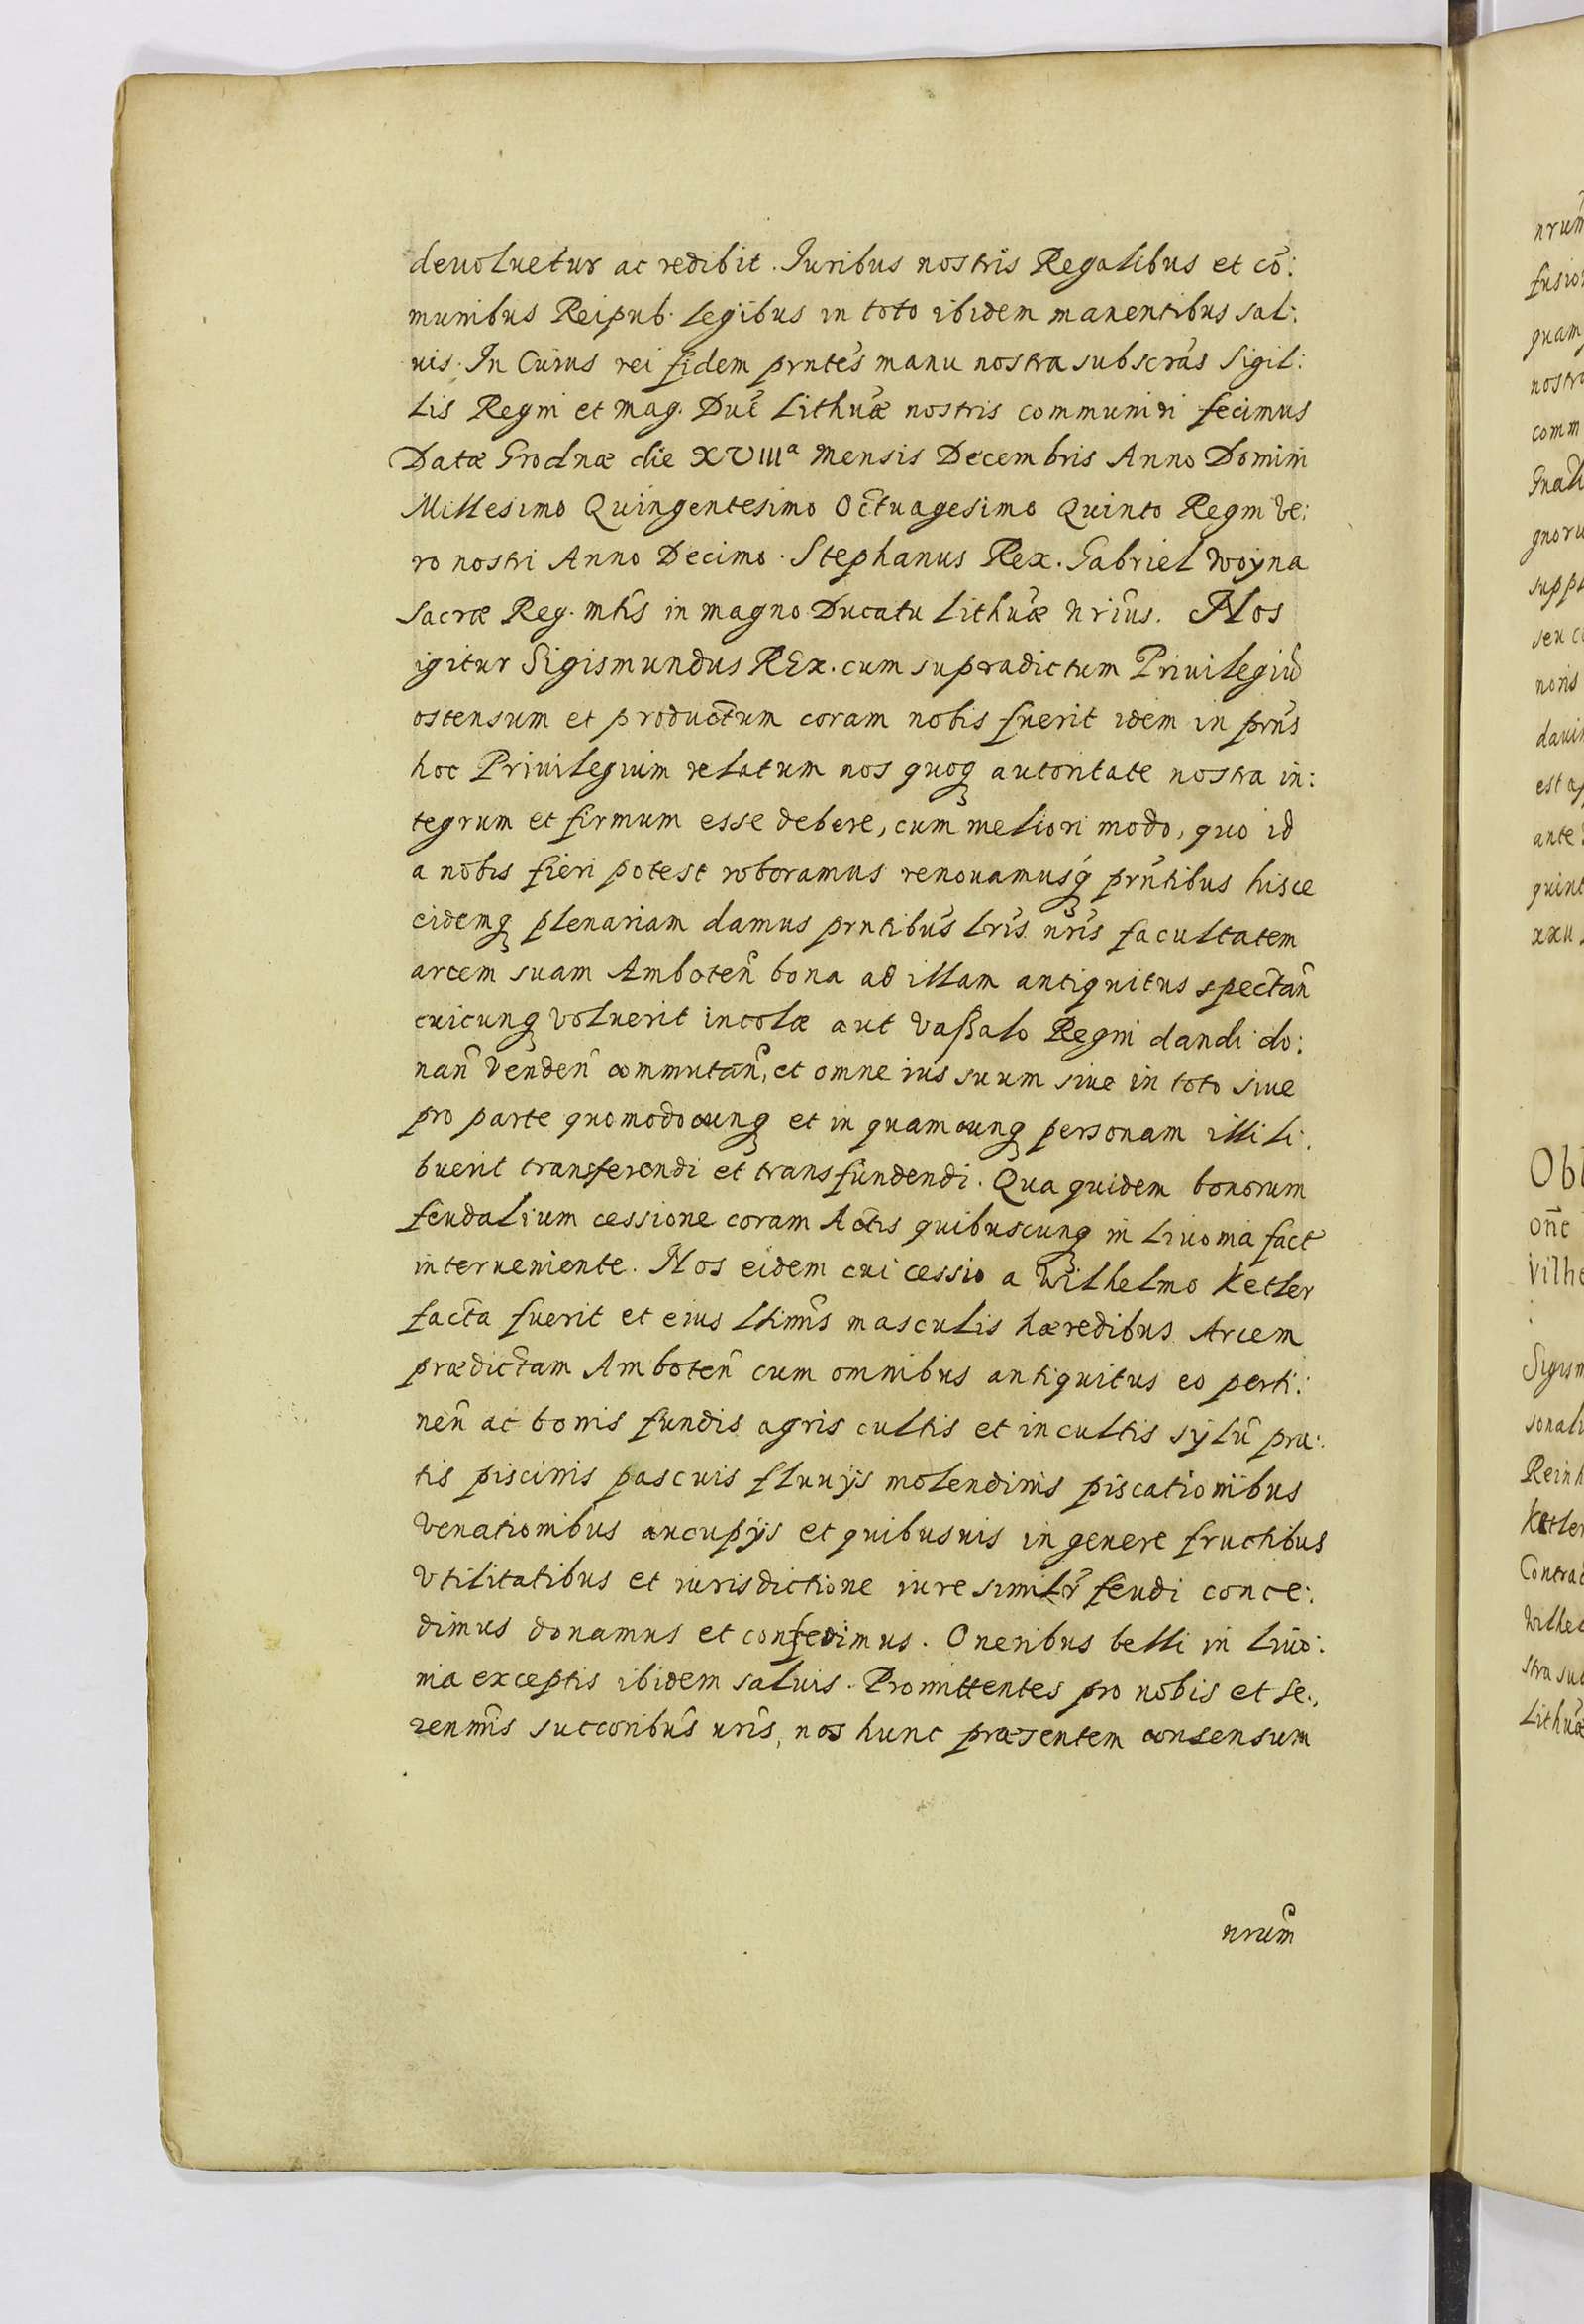 deuoluetur ac redibit. Iuribus nostris Regalibus et cō:
munibus Reipub. legibus in toto ibidem manentibus sal:
uis. In Cuius rei fidem prntẽs manu nostra subscrãs Sigil:
lis Regni et mag. Duc̃ Lithuãæ nostris communiri fecimus
Datæ Grodnæ die XVIIIa mensis Decembris Anno Domini
Millesimo Quingentesimo Octuagesimo Quinto Regni Ve:
ro nostri Anno Decimo. Stephanus Rex. Gabriel Woyna
Sacræ Reg. mtis̃ in magno Ducatu Lithuãæ Nrius̃. Nos
igitur Sigismundus REx. cum supradictum Priuilegiũ
ostensum et productum coram nobis fuerit idem in prns̃
hoc Priuilegium relatum nos quoq autoritate nostra in:
tegrum et firmum esse debere, cum meliori modo, quo id
a nobis fieri potest roboramus renouamusq́ prñtibus hisce
eidemq plenariam damus prntibus̃ lris̃ nris̃ facultatem
arcem suam Amboteñ bona ad illam antiquitus spectañ
cuicunq voluerit incolæ aut Vaßalo Regni dandi do:
nañ Vendeñ commutañ, et omne ius suum siue in toto siue
pro parte quomodocunq et in quamcunq personam illi li:
buerit transferendi et transfundendi. Qua quidem bonorum
feudalium cessione coram Actis quibuscunq in Liuonia fact̃
interueniente. Nos eidem cui cessio a Wilhelmo Ketler
facta fuerit et eius ltimis̃ masculis hæredibus Arcem
prædictam Amboteñ cum omnibus antiquitus eo perti:
neñ ac bonis fundis agris cultis et incultis sylũ pra:
tis piscinis pascuis fluuijs molendinis piscationibus
Venationibus aucupijs et quibusuis in genere fructibus
Vtilitatibus et iurisdictione iure similr̃ feudi conce:
dimus donamus et conferimus. Oneribus belli in Liuo:
nia exceptis ibidem saluis. Promittentes pro nobis et Se:
renmis̃ succoribus̃ nris̃, nos hunc præsentem consensum
nrum̃